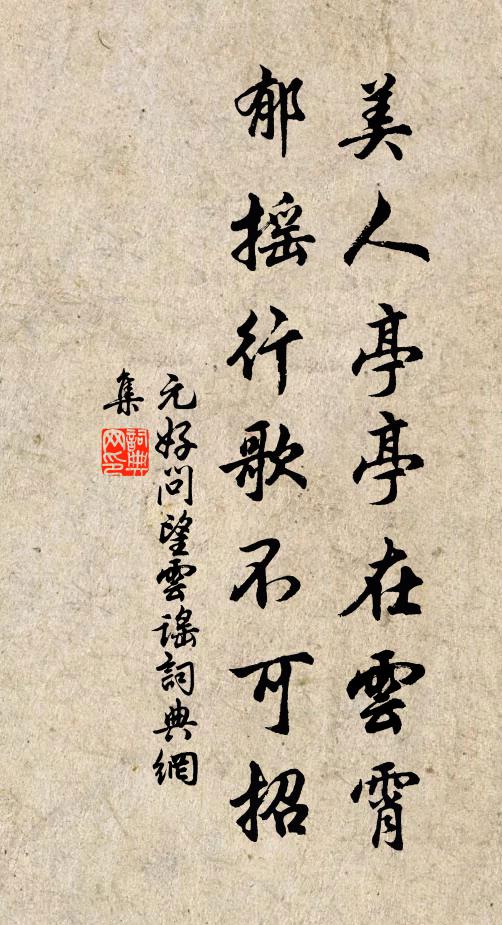 美人亭亭在雲霄
郁摇行歌不可招
元好问望雲谣詞典網
集
詞典网印